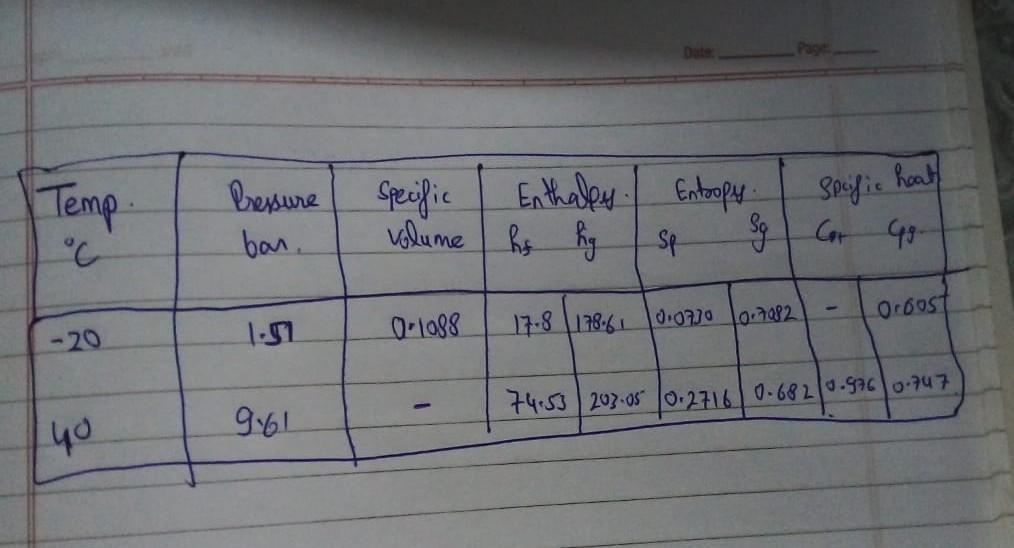 Date: Page:
Temp. Pressure Specific Enthalpy. Entropy. Specific heat
°C bar. Volume hf hg Sf Sg Cpf Cpg.
-20 1.51 0.1088 17.8 178.61 0.0730 0.7082 - 0.605
40 9.61 - 74.53 203.05 0.2716 0.682 0.976 0.747